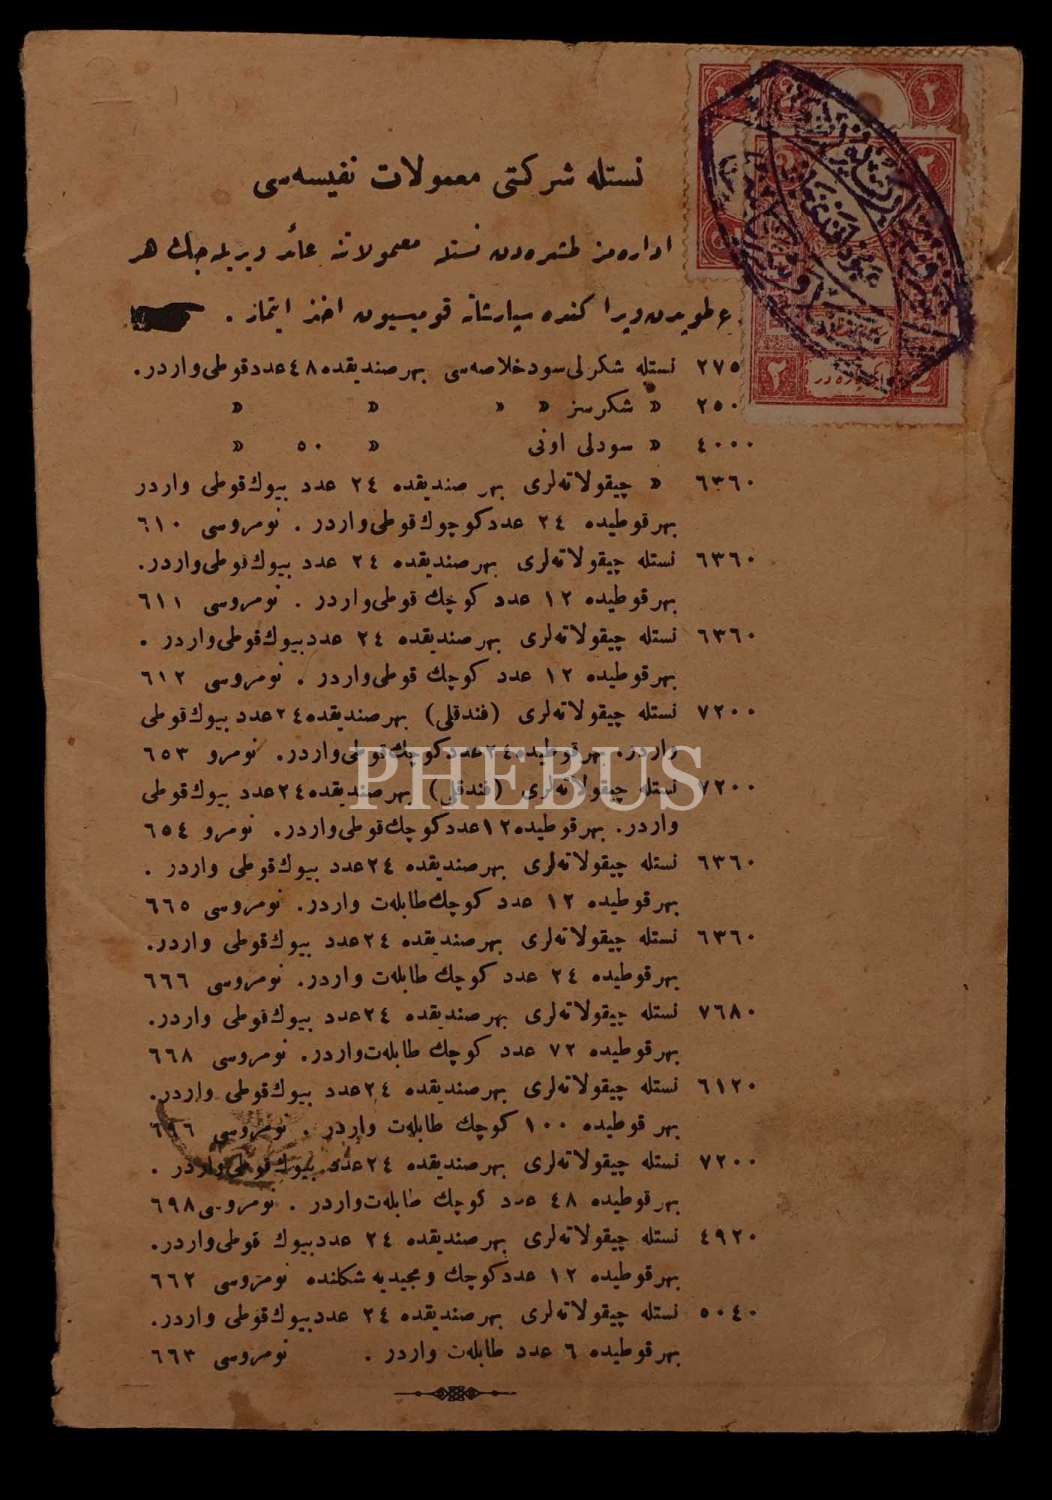 نستله شركتى معمولات نفيسه‌سى
اداره‌مز طشره‌دن نستله معمولاتنه عائد ويريله‌جك هر
طوپدن وپراكنده سپارشاته قوميسيون اخذ ايتمز .
٢٧٥٠ نستله شكرلى سود خلاصه‌سى بهر صنديقده ٤٨ عدد قوطى واردر.
٢٥٠٠ » شكرسز » » » »
٤٠٠٠ » سودلى اونى » ٥٠ »
٦٣٦٠ » چيقولاته‌لرى بهر صنديقده ٢٤ عدد بيوك قوطى واردر
بهر قوطيده ٢٤ عدد كوچوك قوطى واردر . نومروسى ٦١٠
٦٣٦٠ نستله چيقولاته‌لرى بهر صنديقده ٢٤ عدد بيوك قوطى واردر.
بهر قوطيده ١٢ عدد كوچك قوطى واردر . نومروسى ٦١١
٦٣٦٠ نستله چيقولاته‌لرى بهر صنديقده ٢٤ عدد بيوك قوطى واردر .
بهر قوطيده ١٢ عدد كوچك قوطى واردر . نومروسى ٦١٢
٧٢٠٠ نستله چيقولاته‌لرى (فندقلى) بهر صنديقده ٢٤ عدد بيوك قوطى
واردر. بهر قوطيده ٢٤ عدد كوچك قوطى واردر. نومرو ٦٥٣
PHEBUS
٧٢٠٠ نستله چيقولاته‌لرى (فندقلى) بهر صنديقده ٢٤ عدد بيوك قوطى
واردر. بهر قوطيده ١٢ عدد كوچك قوطى واردر. نومرو ٦٥٤
٦٣٦٠ نستله چيقولاته‌لرى بهر صنديقده ٢٤ عدد بيوك قوطى واردر .
بهر قوطيده ١٢ عدد كوچك طابله‌ت واردر. نومروسى ٦٦٥
٦٣٦٠ نستله چيقولاته‌لرى بهر صنديقده ٢٤ عدد بيوك قوطى واردر.
بهر قوطيده ٢٤ عدد كوچك طابله‌ت واردر. نومروسى ٦٦٦
٧٦٨٠ نستله چيقولاته‌لرى بهر صنديقده ٢٤ عدد بيوك قوطى واردر.
بهر قوطيده ٧٢ عدد كوچك طابله‌ت واردر. نومروسى ٦٦٨
٦١٢٠ نستله چيقولاته‌لرى بهر صنديقده ٢٤ عدد بيوك قوطى واردر.
بهر قوطيده ١٠٠ كوچك طابله‌ت واردر . نومروسى ٦٩٦
٧٢٠٠ نستله چيقولاته‌لرى بهر صنديقده ٢٤ عدد بيوك قوطى واردر .
بهر قوطيده ٤٨ عدد كوچك طابله‌ت واردر . نومروسى ٦٩٨
٤٩٢٠ نستله چيقولاته‌لرى بهر صنديقده ٢٤ عدد بيوك قوطى واردر.
بهر قوطيده ١٢ عدد كوچك ومجيديه شكلنده نومروسى ٦٦٢
٥٠٤٠ نستله چيقولاته‌لرى بهر صنديقده ٢٤ عدد بيوك قوطى واردر.
بهر قوطيده ٦ عدد طابله‌ت واردر . نومروسى ٦٦٣